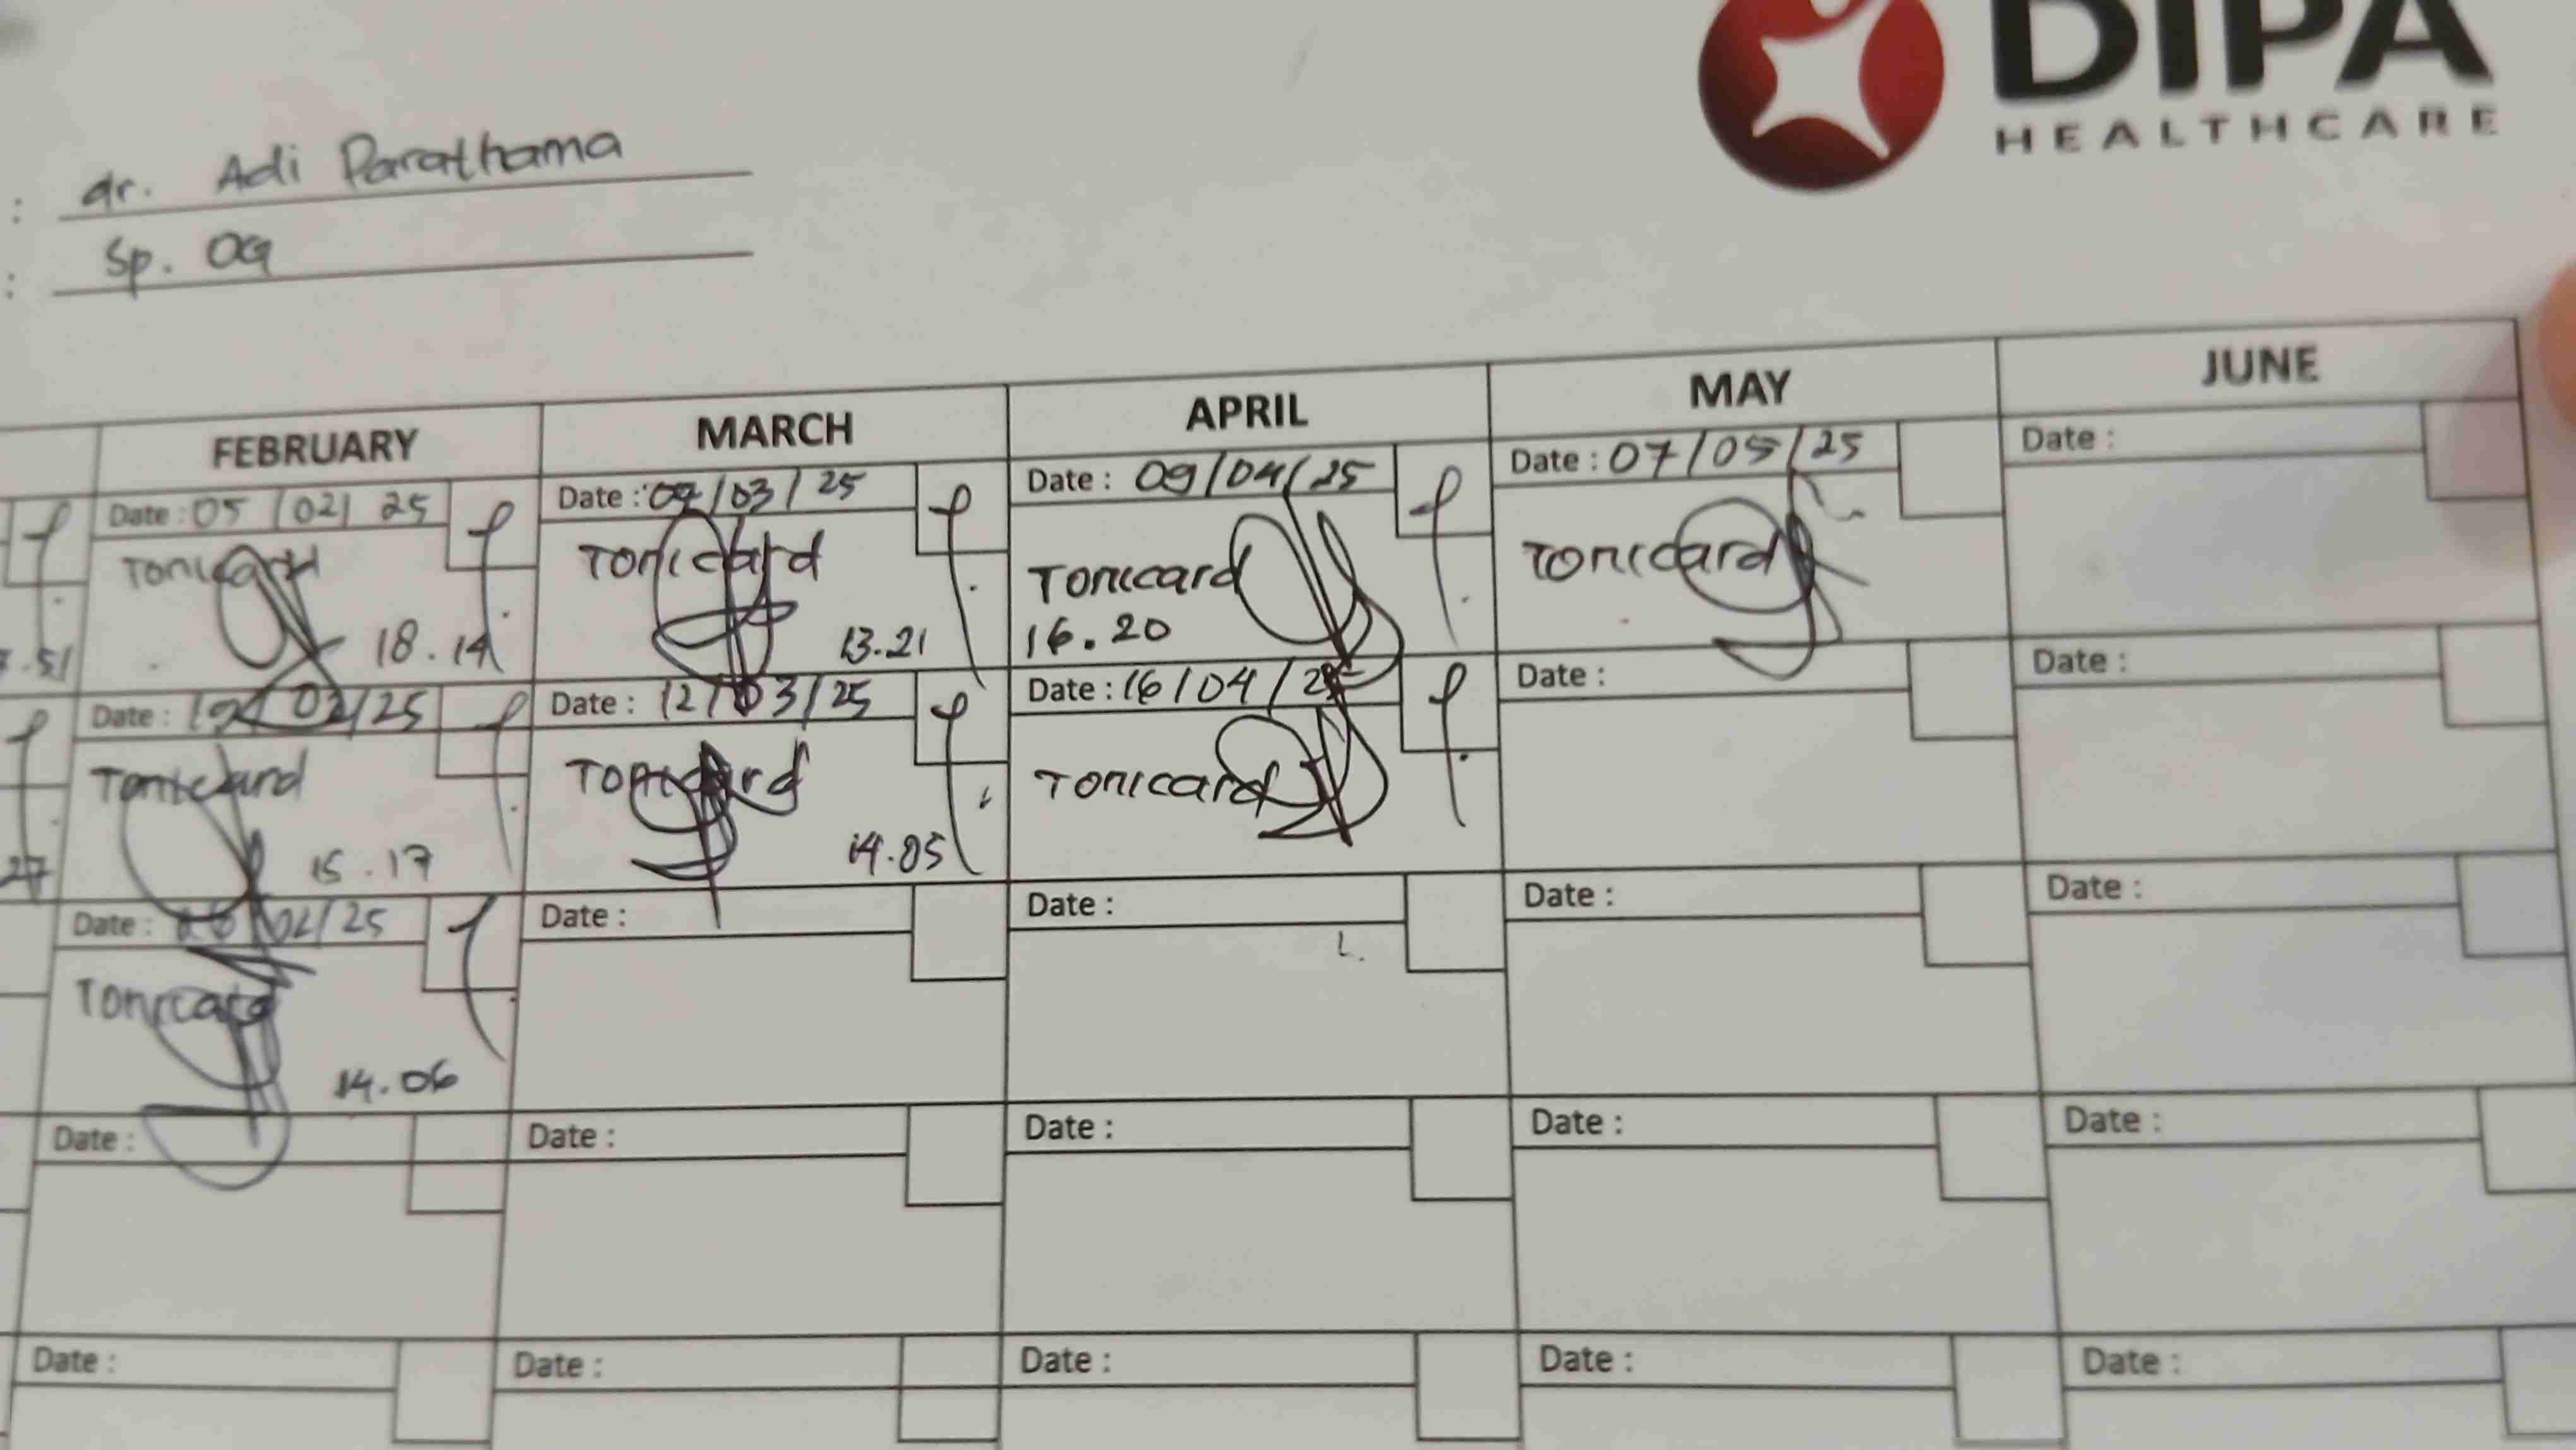 DIPA
HEALTHCARE
: dr. Adi Parathama
: Sp. OG
FEBRUARY MARCH APRIL MAY JUNE
Date : 05/02/25 Date : /03/25 Date : 09/04/25 Date : 07/05/25 Date :
Tonicard Tonicard Tonicard Tonicard
.51 18.14 13.21 16.20
Date : /02/25 Date : 12/03/25 Date : 16/04/25 Date : Date :
Tonicard Tonicard Tonicard
27 15.17 14.05
Date : /02/25 Date : Date : Date : Date :
Tonicard
14.06
Date : Date : Date : Date : Date :
Date : Date : Date : Date : Date :